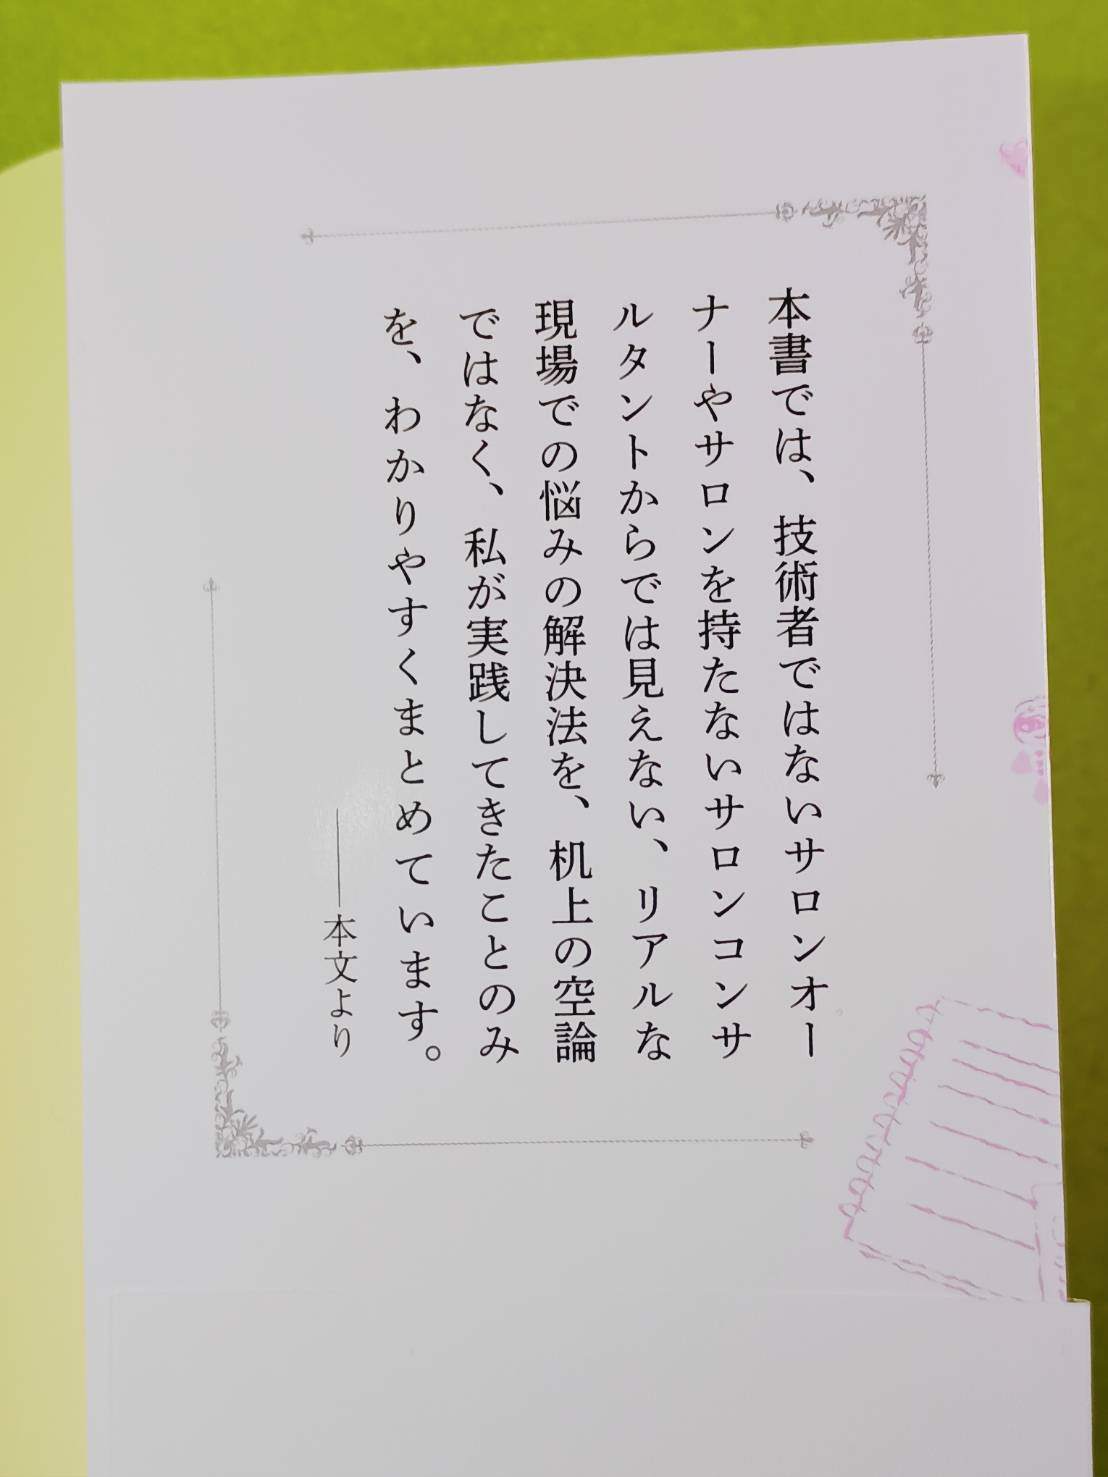 本書では、技術者ではないサロンオー
ナーやサロンを持たないサロンコンサ
ルタントからでは見えない、リアルな
現場での悩みの解決法を、机上の空論
ではなく、私が実践してきたことのみ
を、わかりやすくまとめています。
――本文より